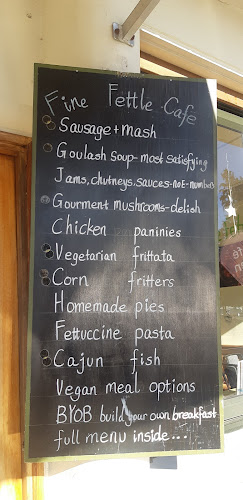 Fine Fettle Cafe
Sausage + mash
Goulash Soup - most satisfying
Jams, chutneys, sauces - no E-numbers
Gourmet mushrooms - delish
Chicken paninies
Vegetarian frittata
Corn fritters
Homemade pies
Fettuccine pasta
Cajun fish
Vegan meal options
BYOB build your own breakfast
full menu inside...